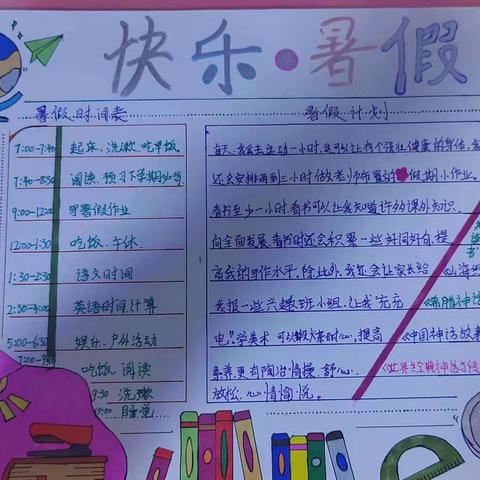 快乐·暑假
暑假时间表
7:00-7:40 起床、洗漱、吃早饭
7:40-8:50 阅读、预习下学期
9:00-12:00 写暑假作业
12:00-1:30 吃饭、午休、
1:30-2:30 语文时间
2:30-4:00 英语时间、计算
5:00-6:30 娱乐、户外活动
吃饭、阅读
9:30 洗漱
:00 睡觉
暑假计划
每天,我会去运动一小时,这可以让有个强壮健康的身体,
还会安排两到三小时做老师布置的假期小作业。
看书至少一小时,看书可以让我知道许多课外知识。
向全面发展,看书时还会积累一些好词好句,提
高我的写作水平。除此外,我还会让家长给
我报一些兴趣班小组,让我“充充
电”。学美术可以耐心,提高
素养更有陶冶情操、舒心、
放松、心情愉悦。
书
《山海
《希腊神话
《中国神话故事
《世界经典神话与传